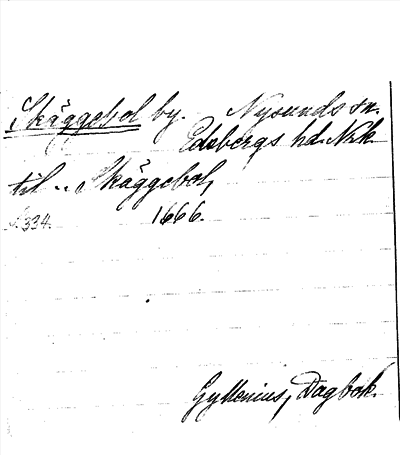 Skäggebol by. Nysunds sn.
Edsbergs hd. Nrk.
till .. Skäggebol,
S. 334. 1666.
Gyllenius, Dagbok.